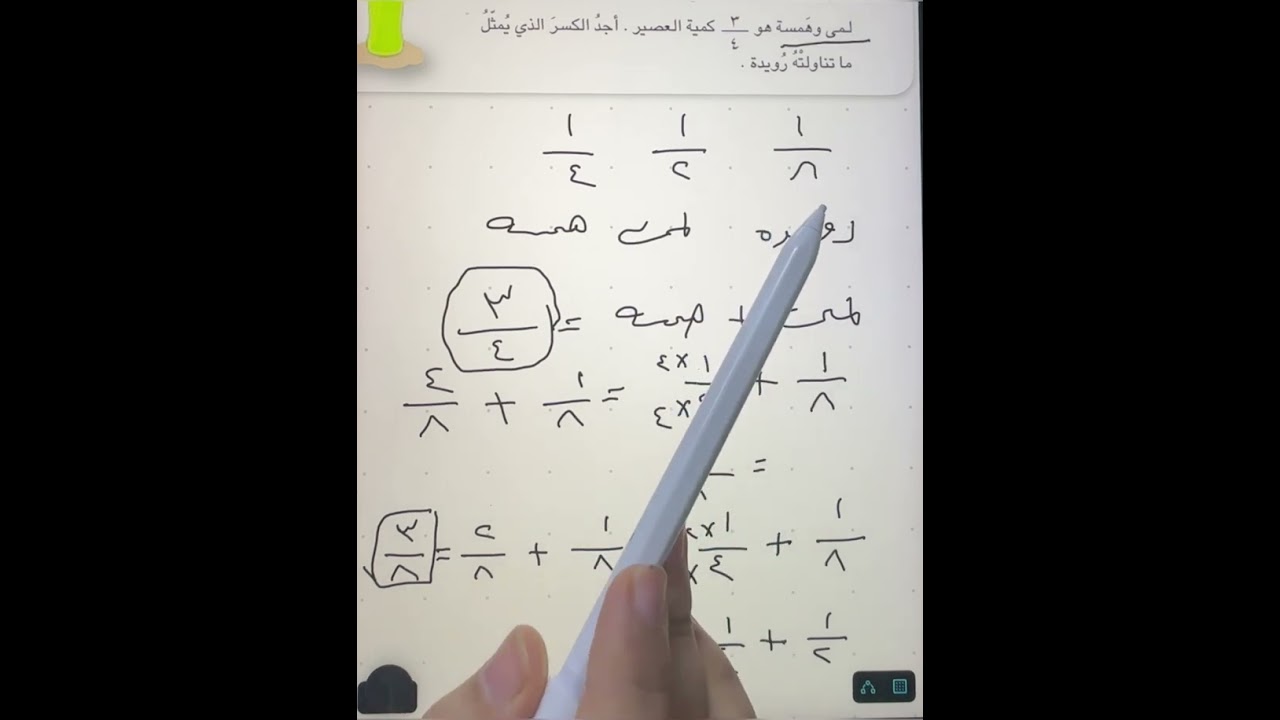 لمى وهَمسة هو ٣/٤ كمية العصير . أجدُ الكسرَ الذي يُمثّلُ
ما تناولتْهُ رُويدة .
١/٨ ١/٢ ١/٤
لمى همسه
همسه = ٣/٤
١/٨ + = ١/٨ + ٤/٨
=
١/٨ + ١×/٤ ١/٨ + ٢/٨ = ٣/٨
١/٢ +